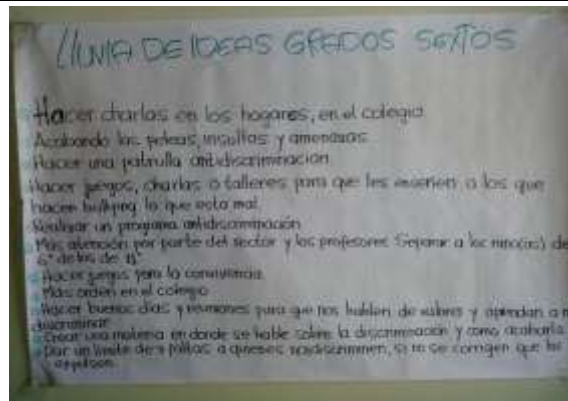 LLUVIA DE IDEAS GRADOS SEXTOS
Hacer charlas en los hogares, en el colegio
Acabando las peleas, insultos y amenazas
Hacer una patrulla antidiscriminacion
Hacer juegos, charlas o talleres para que les enseñen a los que
hacen bullying lo que esta mal
Realizar un programa antidiscriminación
Mas atención por parte del rector y los profesores Separar a los niños(as) de
6° de los de 11°
Hacer juegos para la convivencia
Mas orden en el colegio
Hacer buenos dias y reuniones para que nos hablen de valores y aprendan a n
discriminar
Crear una materia en donde se hable sobre la discriminación y como acabarla
Dar un limite de 3 faltas a quienes discriminen, si no se corrigen que los
expulsen